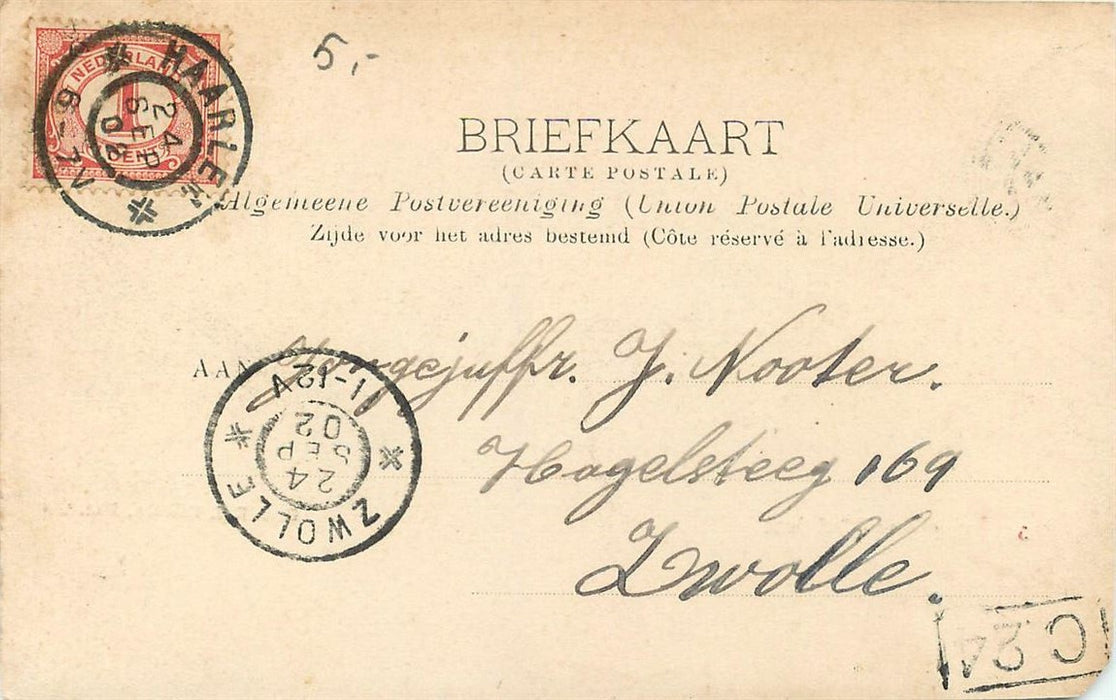 5,-
NEDERLAND
1
CENT
HAARLEM
24
SEP
02
6-7V
BRIEFKAART
(CARTE POSTALE)
Algemeene Postvereeniging (Union Postale Universelle.)
Zijde voor het adres bestemd (Côte réservé à l'adresse.)
AAN Jongejuffr. J. Nooter.
Hagelsteeg 169
Zwolle.
11-12V
24
SEP
02
ZWOLLE
C 24